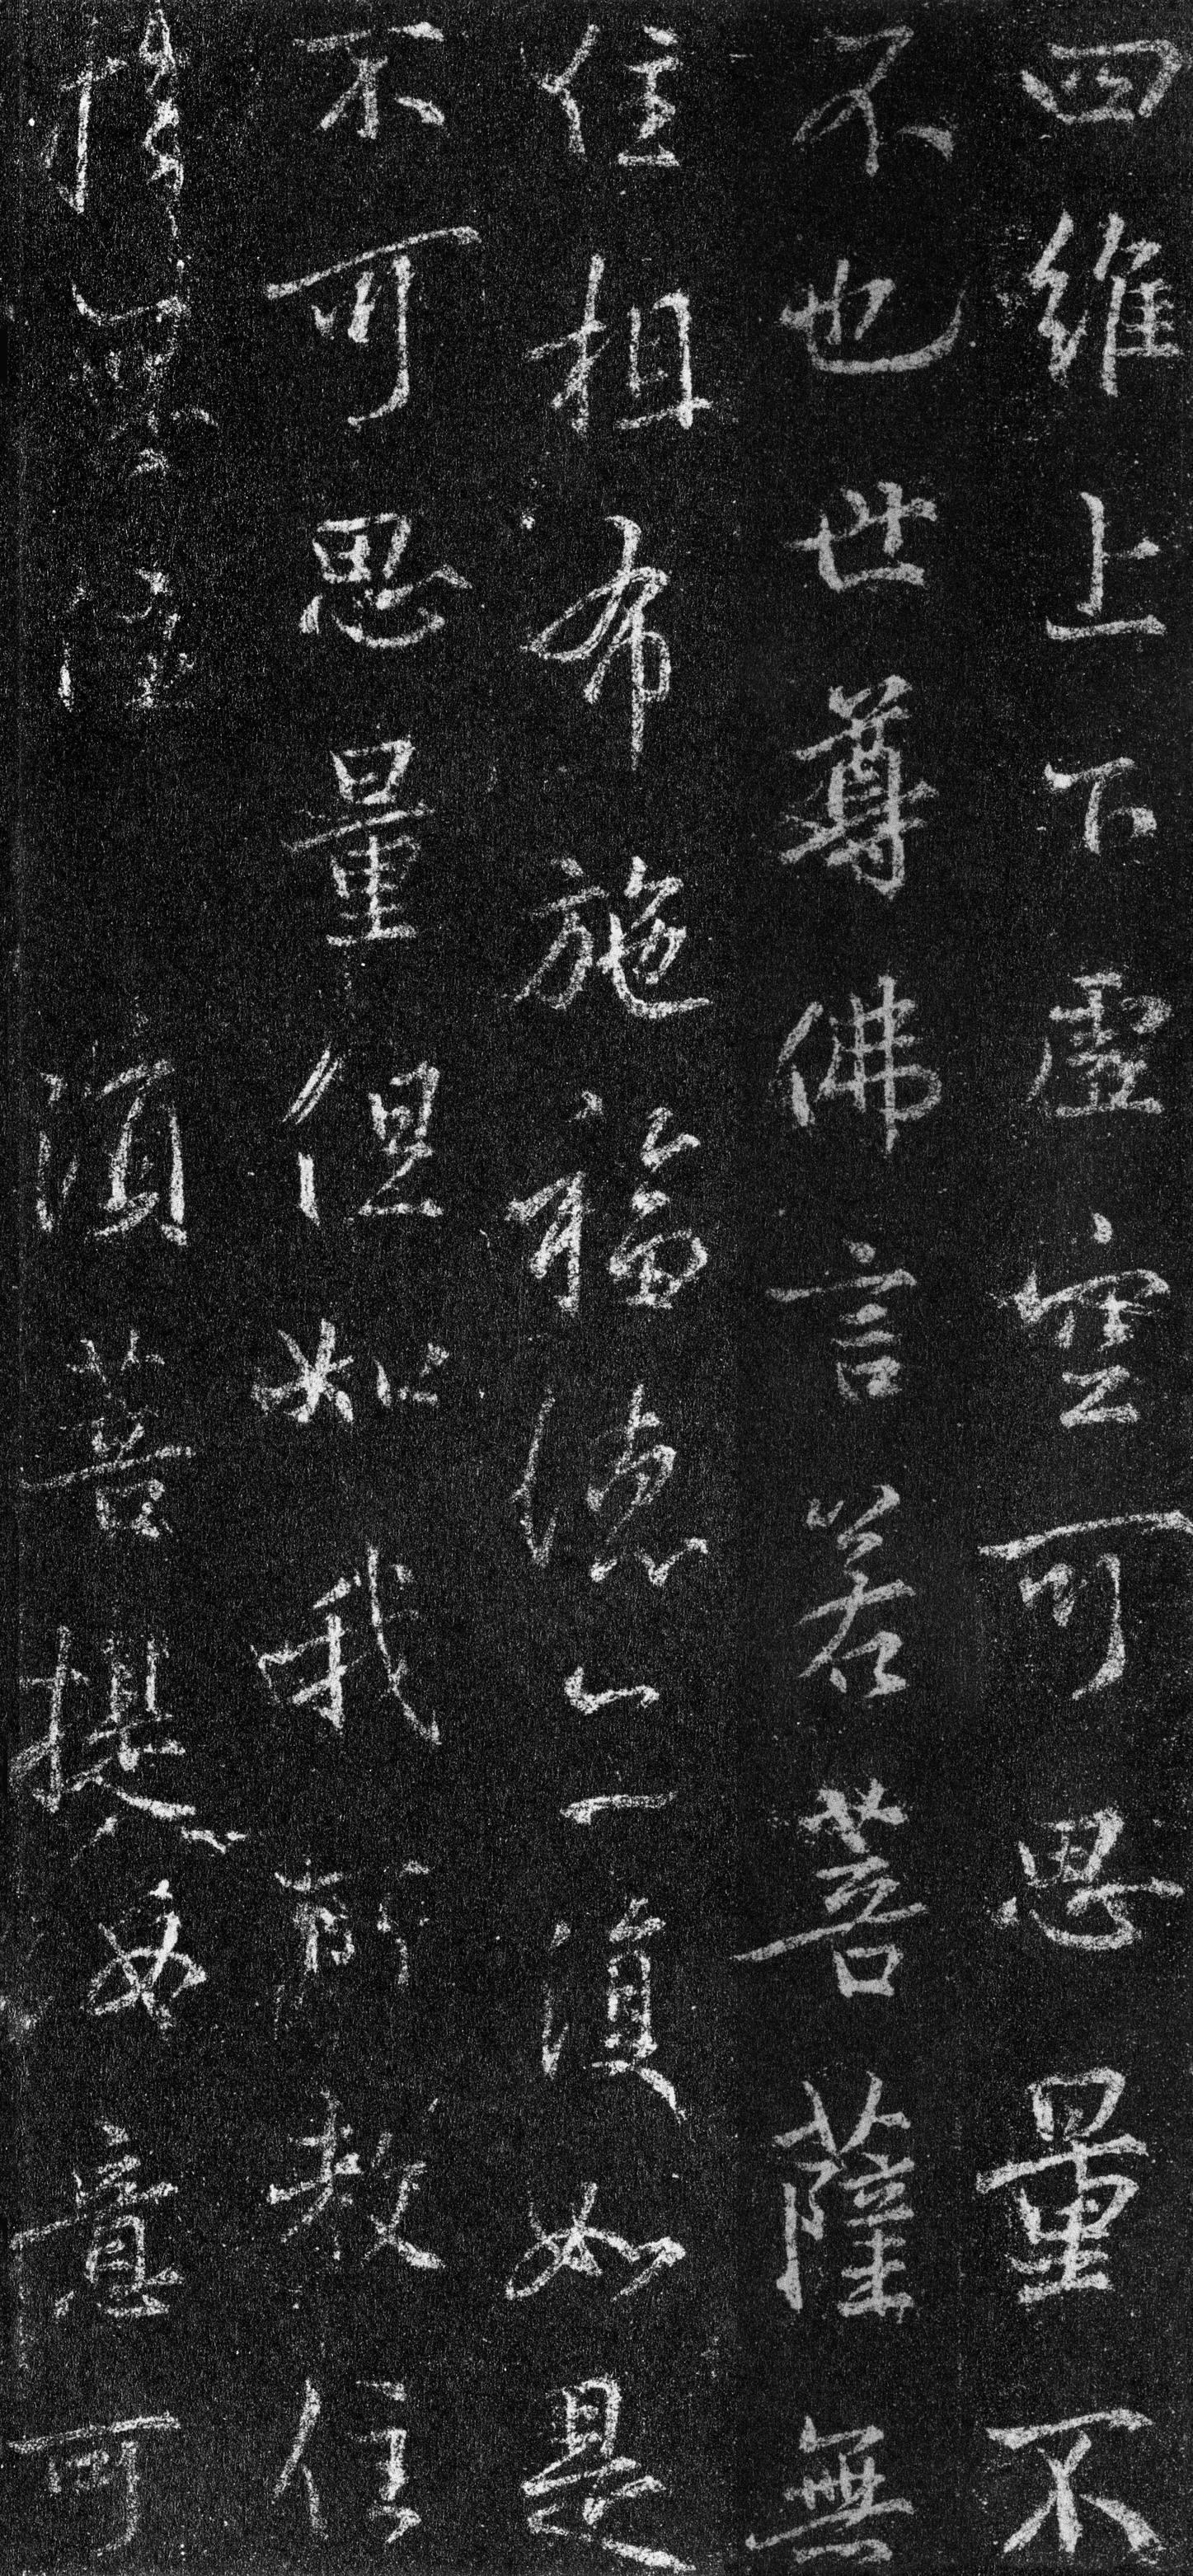 四維上下虛空可思量不
不也世尊佛言若菩薩無
住相布施福德亦復如是
不可思量但如我所教住
住須菩提意可